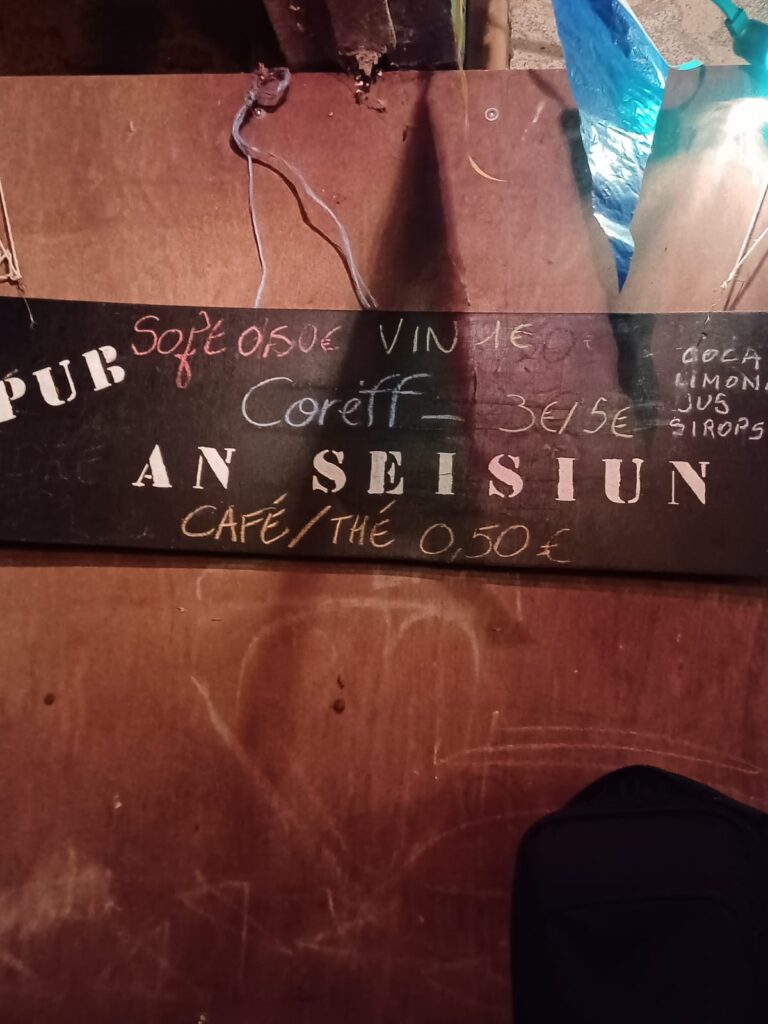 PUB
Soft 0,50€ VIN 1€
Coreff - 3€/5€
COCA
LIMON
JUS
SIROPS
AN SEISIUN
CAFÉ/THÉ 0,50€